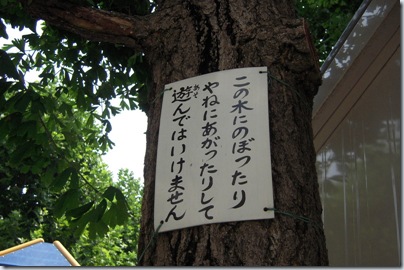 この木にのぼったり
やねにあがったりして
遊んではいけません